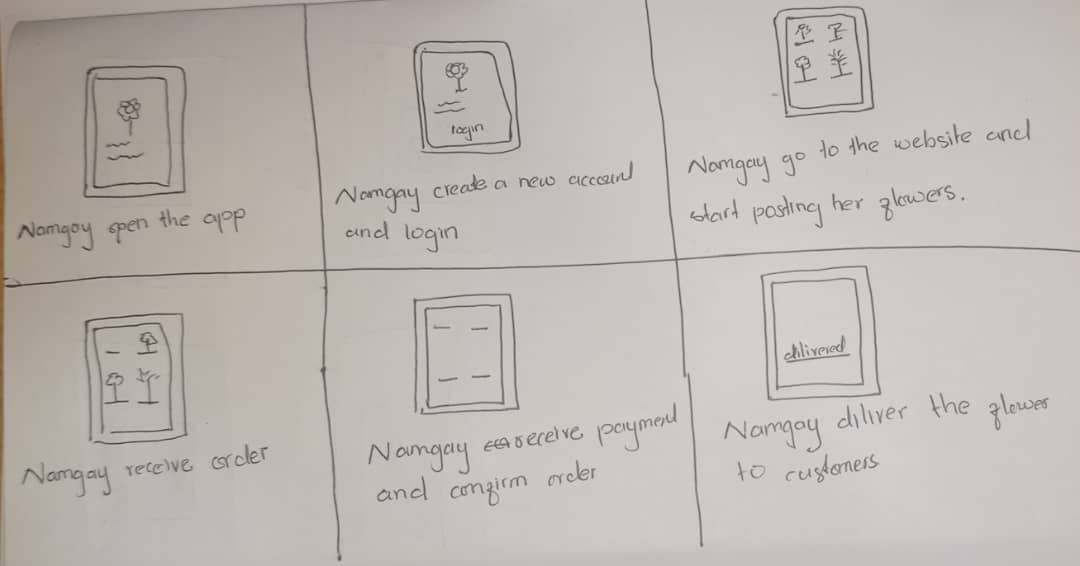 login
Namgay open the app
Namgay create a new account
and login
Namgay go to the website and
start posting her flowers.
Namgay receive order
Namgay receive payment
and confirm order
dilivered
Namgay diliver the flower
to customers